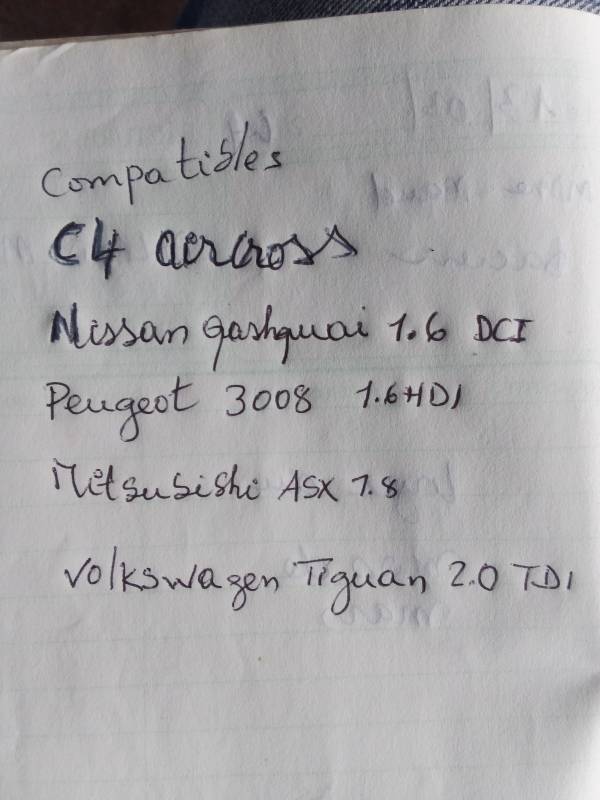 Compatibles
C4 aercross
Nissan qashquai 1.6 DCI
Peugeot 3008 1.6 HDI
Mitsubishi ASX 1.8
Volkswagen Tiguan 2.0 TDI